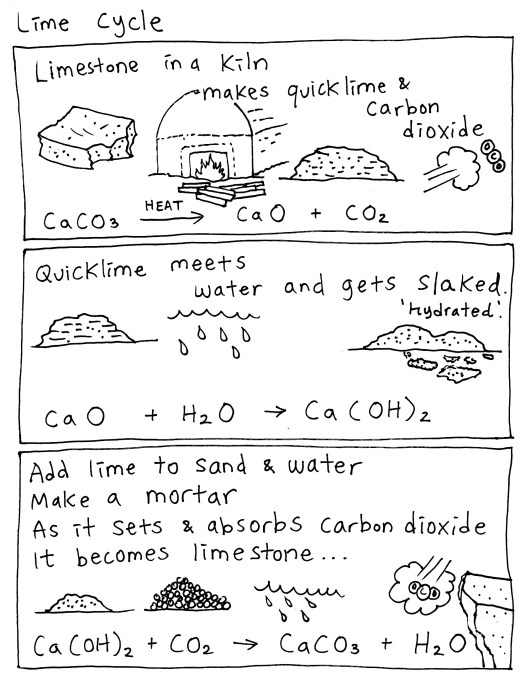 Lime Cycle
Limestone in a Kiln
makes quicklime &
Carbon
dioxide
OCO
CaCO₃ HEAT→ CaO + CO₂
Quicklime meets
water and gets slaked.
'Hydrated'.
CaO + H₂O → Ca(OH)₂
Add lime to sand & water
Make a mortar
As it sets & absorbs carbon dioxide
It becomes limestone...
OCO
Ca(OH)₂ + CO₂ → CaCO₃ + H₂O